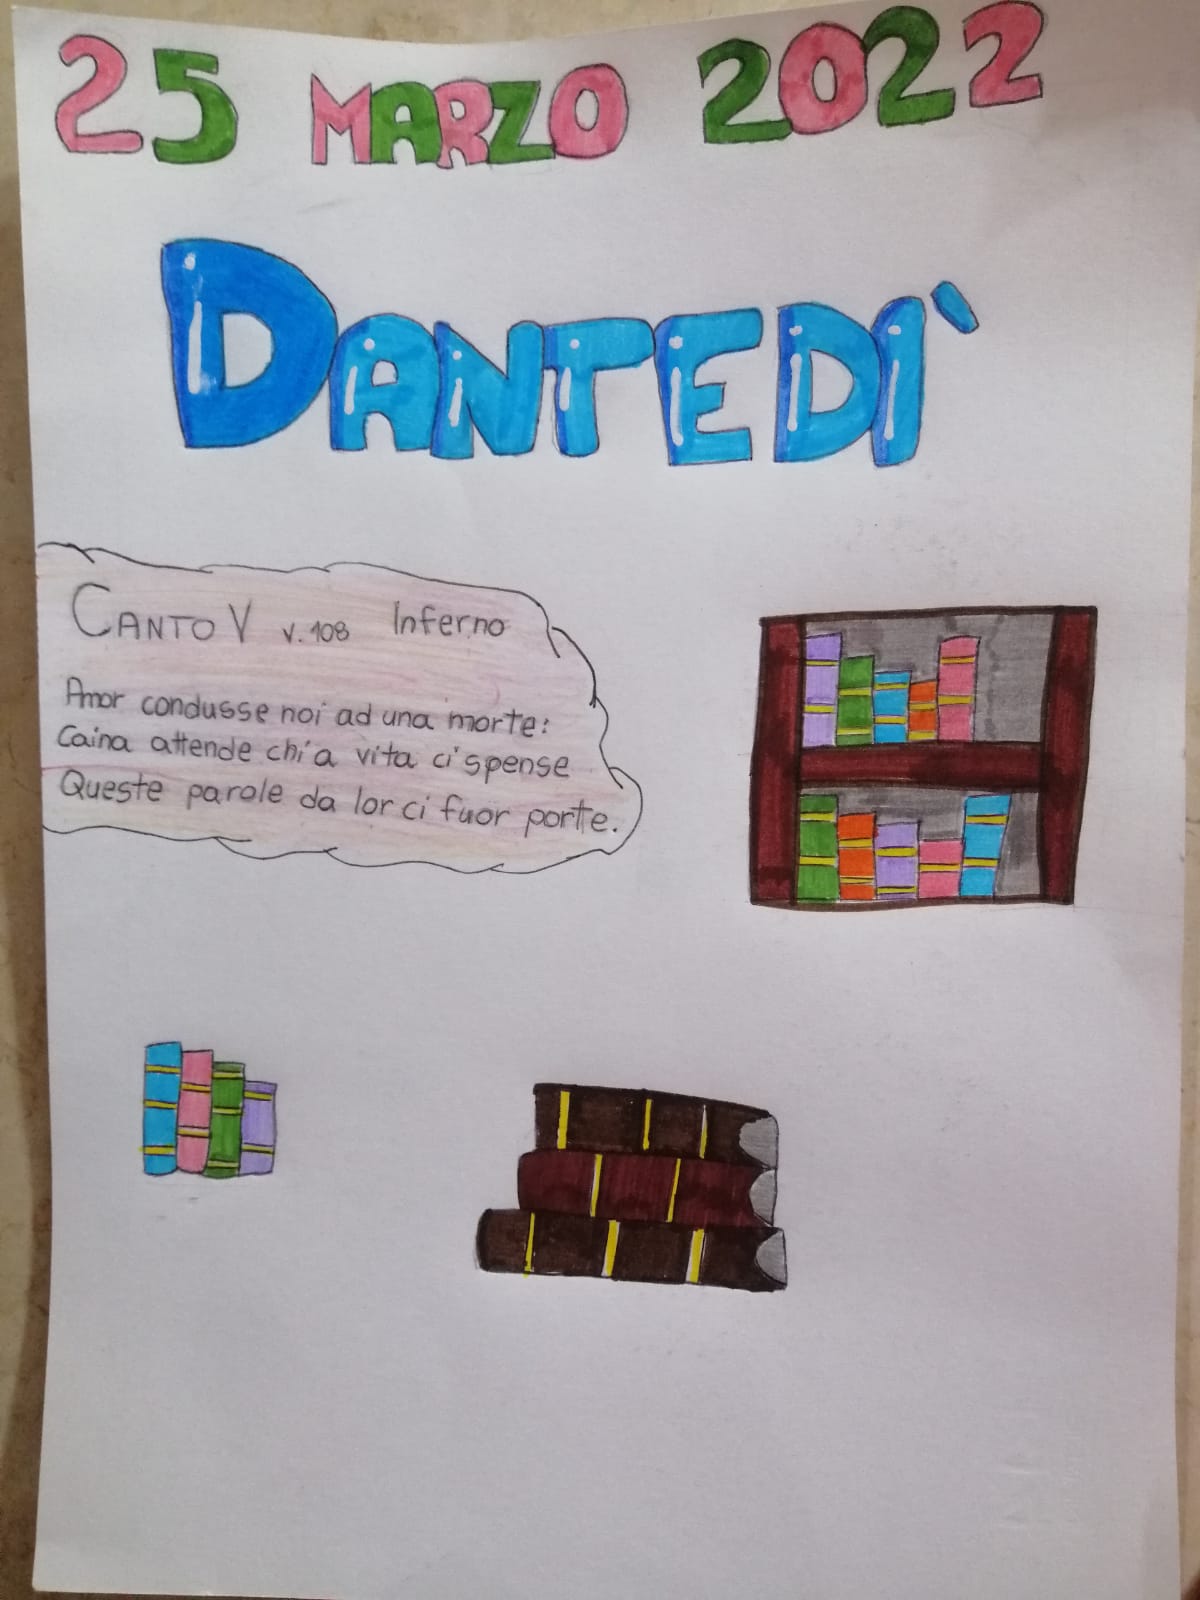 25 MARZO 2022
DANTEDÌ
CANTO V v. 108 Inferno
Amor condusse noi ad una morte:
Caina attende chi a vita ci spense
Queste parole da lor ci fuor porte.